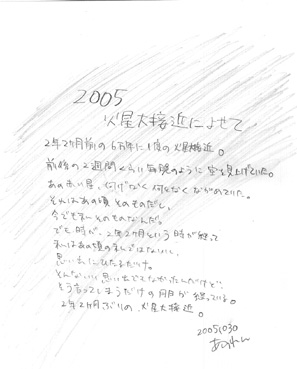 2005
火星大接近によせて
2年2ヶ月前の6万年に1度の火星接近。
前後の2週間くらい毎晩のように空を見上げていた。
あの赤い星、何げなく何となくながめていた。
それはあの頃そのものだし、
今でもそのものなんだ。
でも時が、2年2ヶ月という時が経って
私はあの頃の私ではないし、
思い出にひたるだけ。
そんないい思い出でもなかったんだけど、
そう言ってしまうだけの月日が経っている。
2年2ヶ月ぶりの、火星大接近。
20051030